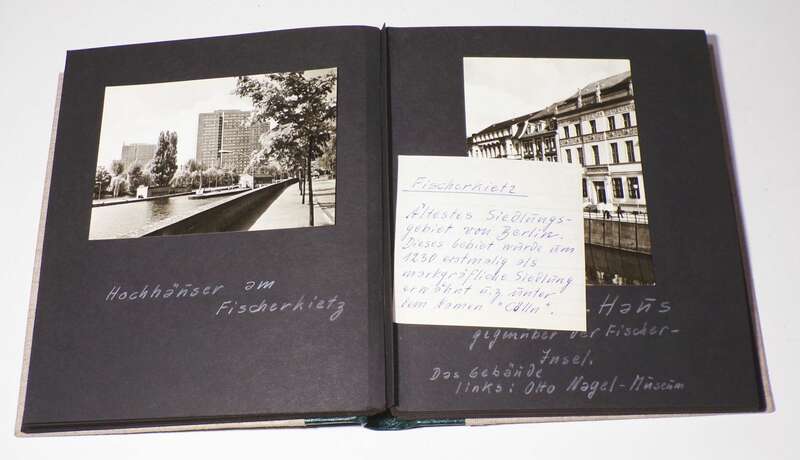 Hochhäuser am
Fischerkietz
Fischerkietz
Ältestes Siedlungs-
gebiet von Berlin.
Dieses Gebiet wurde um
1230 erstmalig als
markgräfliche Siedlung
erwähnt u.z unter
dem Namen "Cölln".
Haus
gegenüber der Fischer-
Insel.
Das Gebäude
links: Otto Nagel-Museum